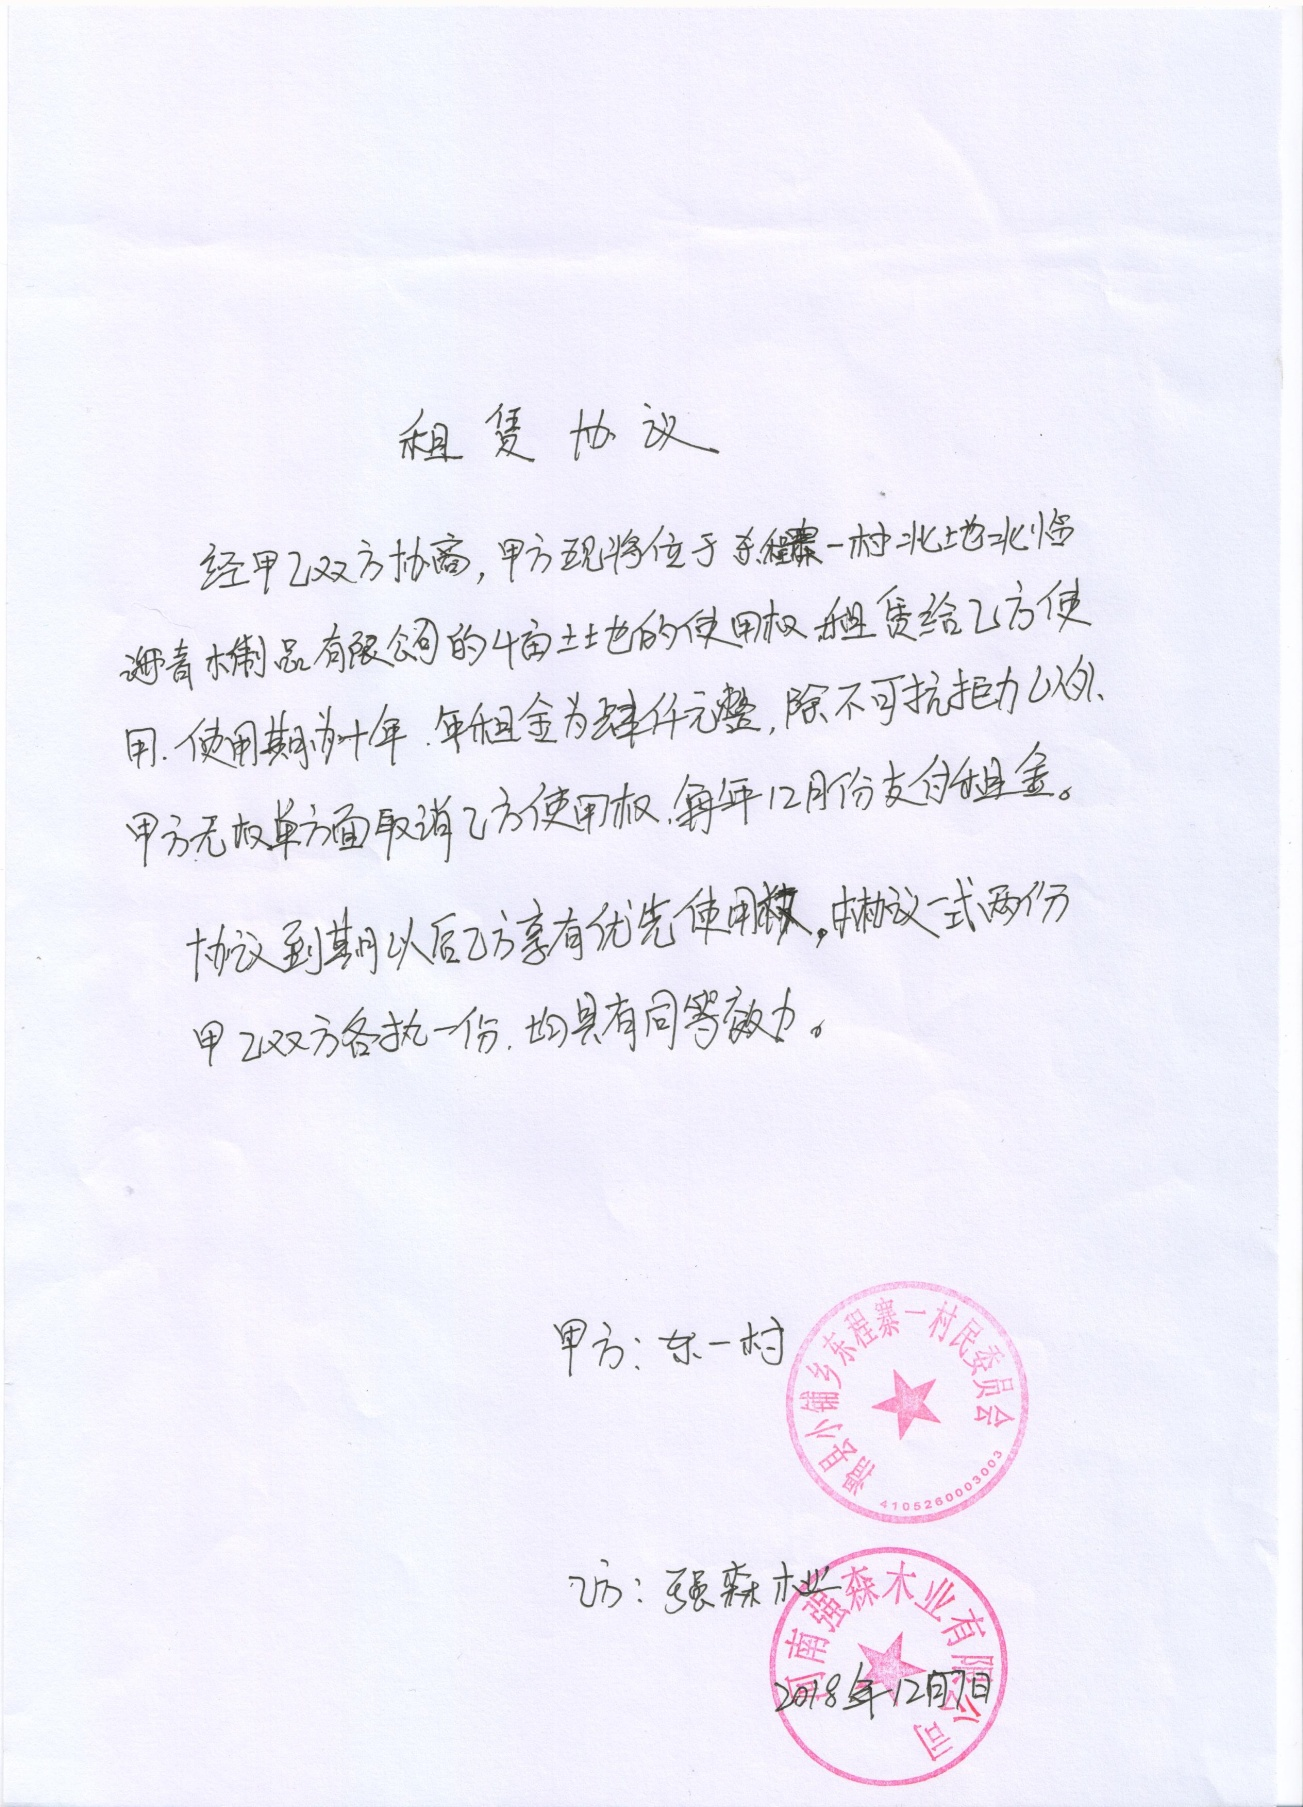 租赁协议
经甲乙双方协商，甲方现将位于东程寨一村北地北临
青木制品有限公司的4亩土地的使用权租赁给乙方使
用.使用期为十年.年租金为肆仟元整，除不可抗拒力以外、
甲方无权单方面取消乙方使用权.每年12月份支付租金。
协议到期以后乙方享有优先使用权。本协议一式两份
甲乙双方各执一份.均具有同等效力。
甲方：东一村
滑县小铺乡东程寨一村民委员会
4105260003003
乙方：强森木业
河南强森木业有限公司
2018年12月7日